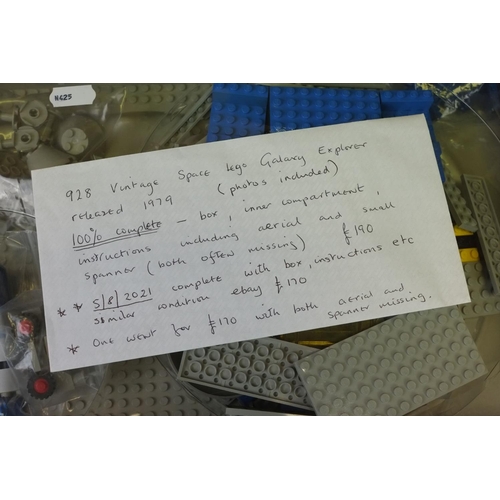 N625
928 Vintage Space Lego Galaxy Explorer
released 1979 (photos included)
100% complete – box, inner compartment,
instructions including aerial and small
spanner (both often missing) £190
* * 5/8/2021 complete with box, instructions etc
similar condition ebay £170
* One went for £170 with both aerial and
spanner missing.